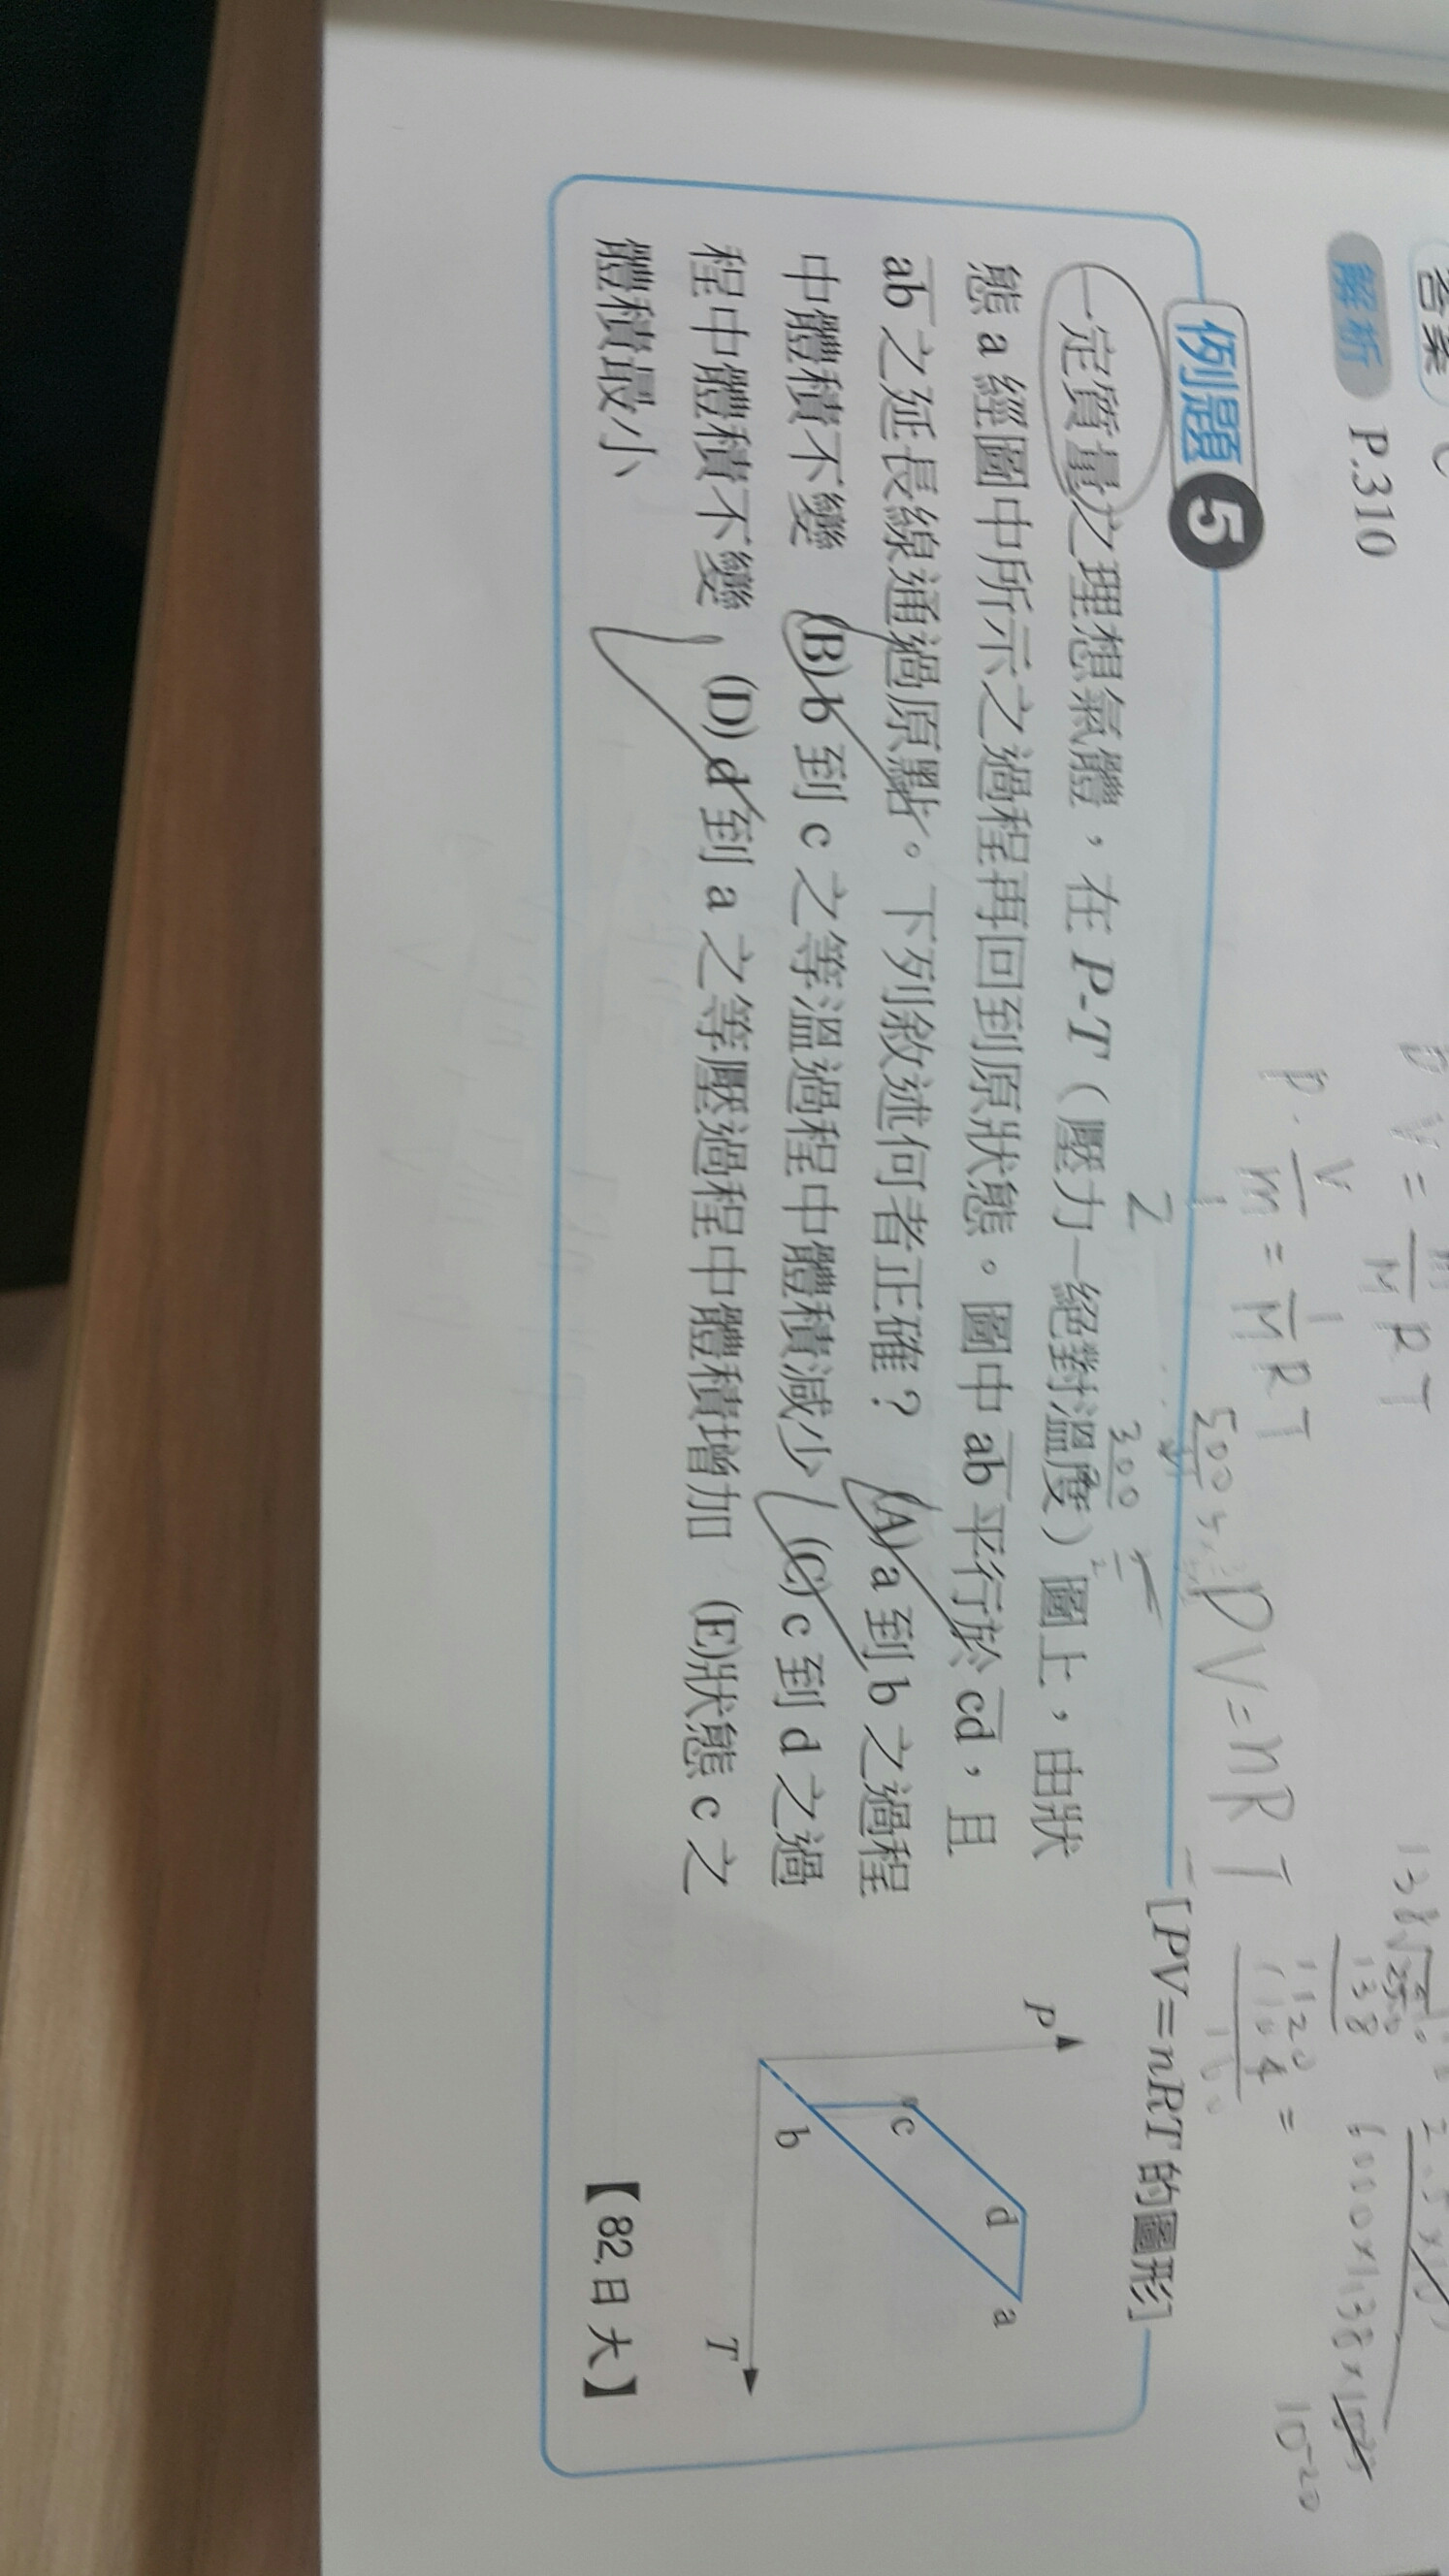 解析 P.310
P V = m/M R T
P · V/m = 1/M R T
PV=nRT
例題 5 [PV=nRT 的圖形]
一定質量之理想氣體，在 P-T（壓力—絕對溫度）圖上，由狀
態 a 經圖中所示之過程再回到原狀態。圖中 ab 平行於 cd，且
ab 之延長線通過原點。下列敘述何者正確？ (A) a 到 b 之過程
中體積不變 (B) b 到 c 之等溫過程中體積減少 (C) c 到 d 之過
程中體積不變 (D) d 到 a 之等壓過程中體積增加 (E)狀態 c 之
體積最小
【82.日大】
P
d
a
c
b
T